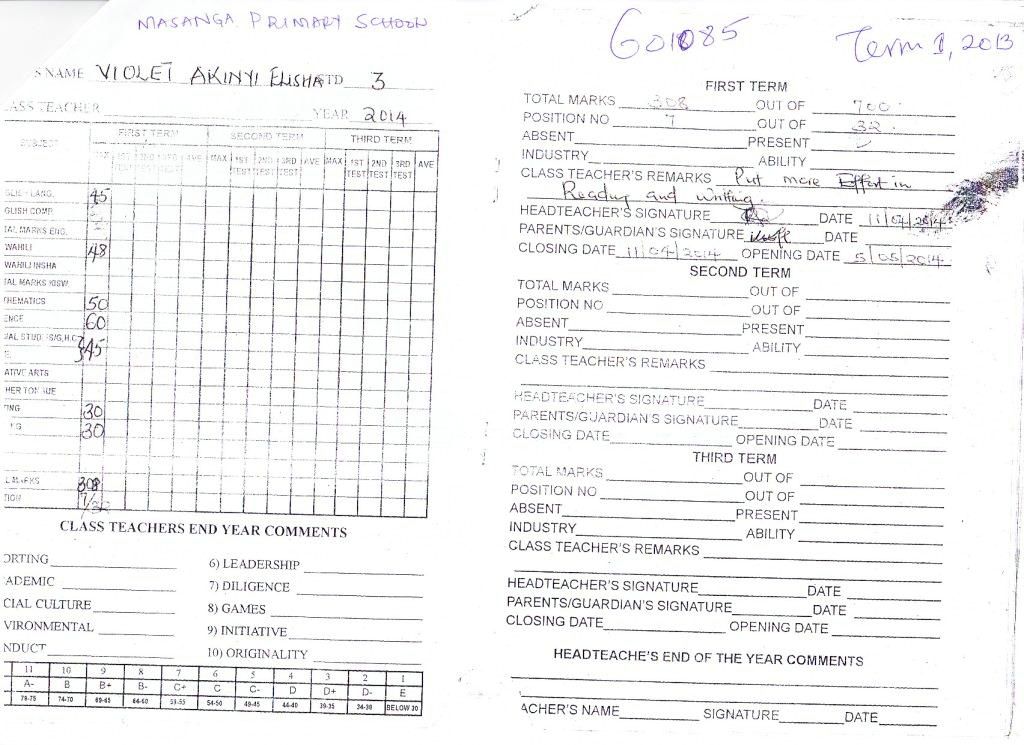 MASANGA PRIMARY SCHOOL
S NAME VIOLET AKINYI ELISHA STD 3
ASS TEACHER YEAR 2014
SUBJECT FIRST TERM SECOND TERM THIRD TERM
MAX 1ST TEST 2ND TEST 3RD TEST AVE MAX 1ST TEST 2ND TEST 3RD TEST AVE MAX 1ST TEST 2ND TEST 3RD TEST AVE
GLISH LANG. 45
GLISH COMP.
TAL MARKS ENG.
WAHILI 48
WAHILI INSHA
TAL MARKS KISW.
THEMATICS 50
ENCE 60
IAL STUDIES/G,H,C 45
E.
ATIVE ARTS
HER TONGUE
TING 30
NG 30
L MARKS 308
TION 7/32
CLASS TEACHERS END YEAR COMMENTS
ORTING 6) LEADERSHIP
ADEMIC 7) DILIGENCE
CIAL CULTURE 8) GAMES
VIRONMENTAL 9) INITIATIVE
NDUCT 10) ORIGINALITY
11 10 9 8 7 6 5 4 3 2 1
A- B B+ B- C+ C C- D D+ D- E
79-75 74-70 69-65 64-60 59-55 54-50 49-45 44-40 39-35 34-30 BELOW 30
601085
Term 1, 2013
FIRST TERM
TOTAL MARKS 308 OUT OF 700
POSITION NO 7 OUT OF 32
ABSENT PRESENT
INDUSTRY ABILITY
CLASS TEACHER'S REMARKS Put more Effort in
Reading and writing.
HEADTEACHER'S SIGNATURE DATE 11/04/2014
PARENTS/GUARDIAN'S SIGNATURE DATE
CLOSING DATE 11/04/2014 OPENING DATE 5/05/2014
SECOND TERM
TOTAL MARKS OUT OF
POSITION NO OUT OF
ABSENT PRESENT
INDUSTRY ABILITY
CLASS TEACHER'S REMARKS
HEADTEACHER'S SIGNATURE DATE
PARENTS/GUARDIAN'S SIGNATURE DATE
CLOSING DATE OPENING DATE
THIRD TERM
TOTAL MARKS OUT OF
POSITION NO OUT OF
ABSENT PRESENT
INDUSTRY ABILITY
CLASS TEACHER'S REMARKS
HEADTEACHER'S SIGNATURE DATE
PARENTS/GUARDIAN'S SIGNATURE DATE
CLOSING DATE OPENING DATE
HEADTEACHE'S END OF THE YEAR COMMENTS
ACHER'S NAME SIGNATURE DATE